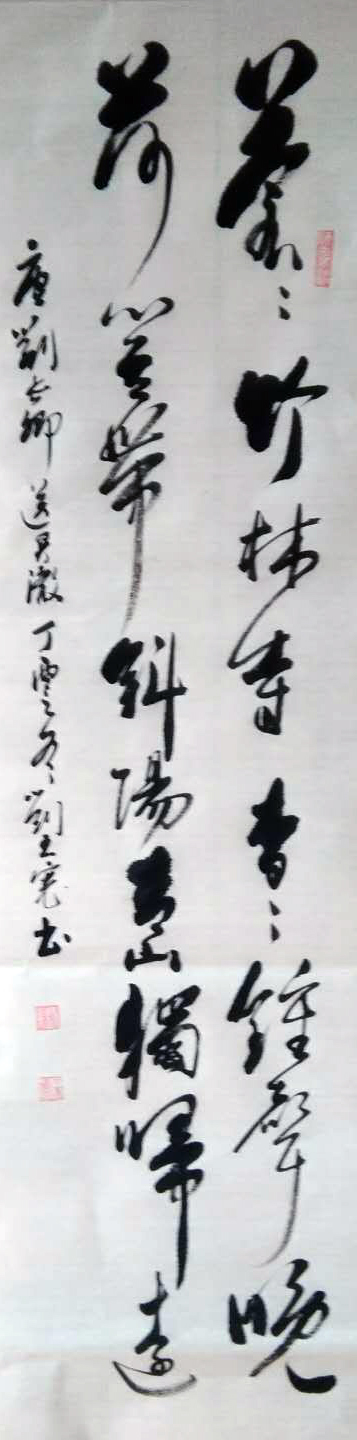 蒼〻竹林寺杳〻鐘聲晚
荷笠帶斜陽青山獨歸遠
唐劉長卿送靈澈丁酉之冬劉玉寬書